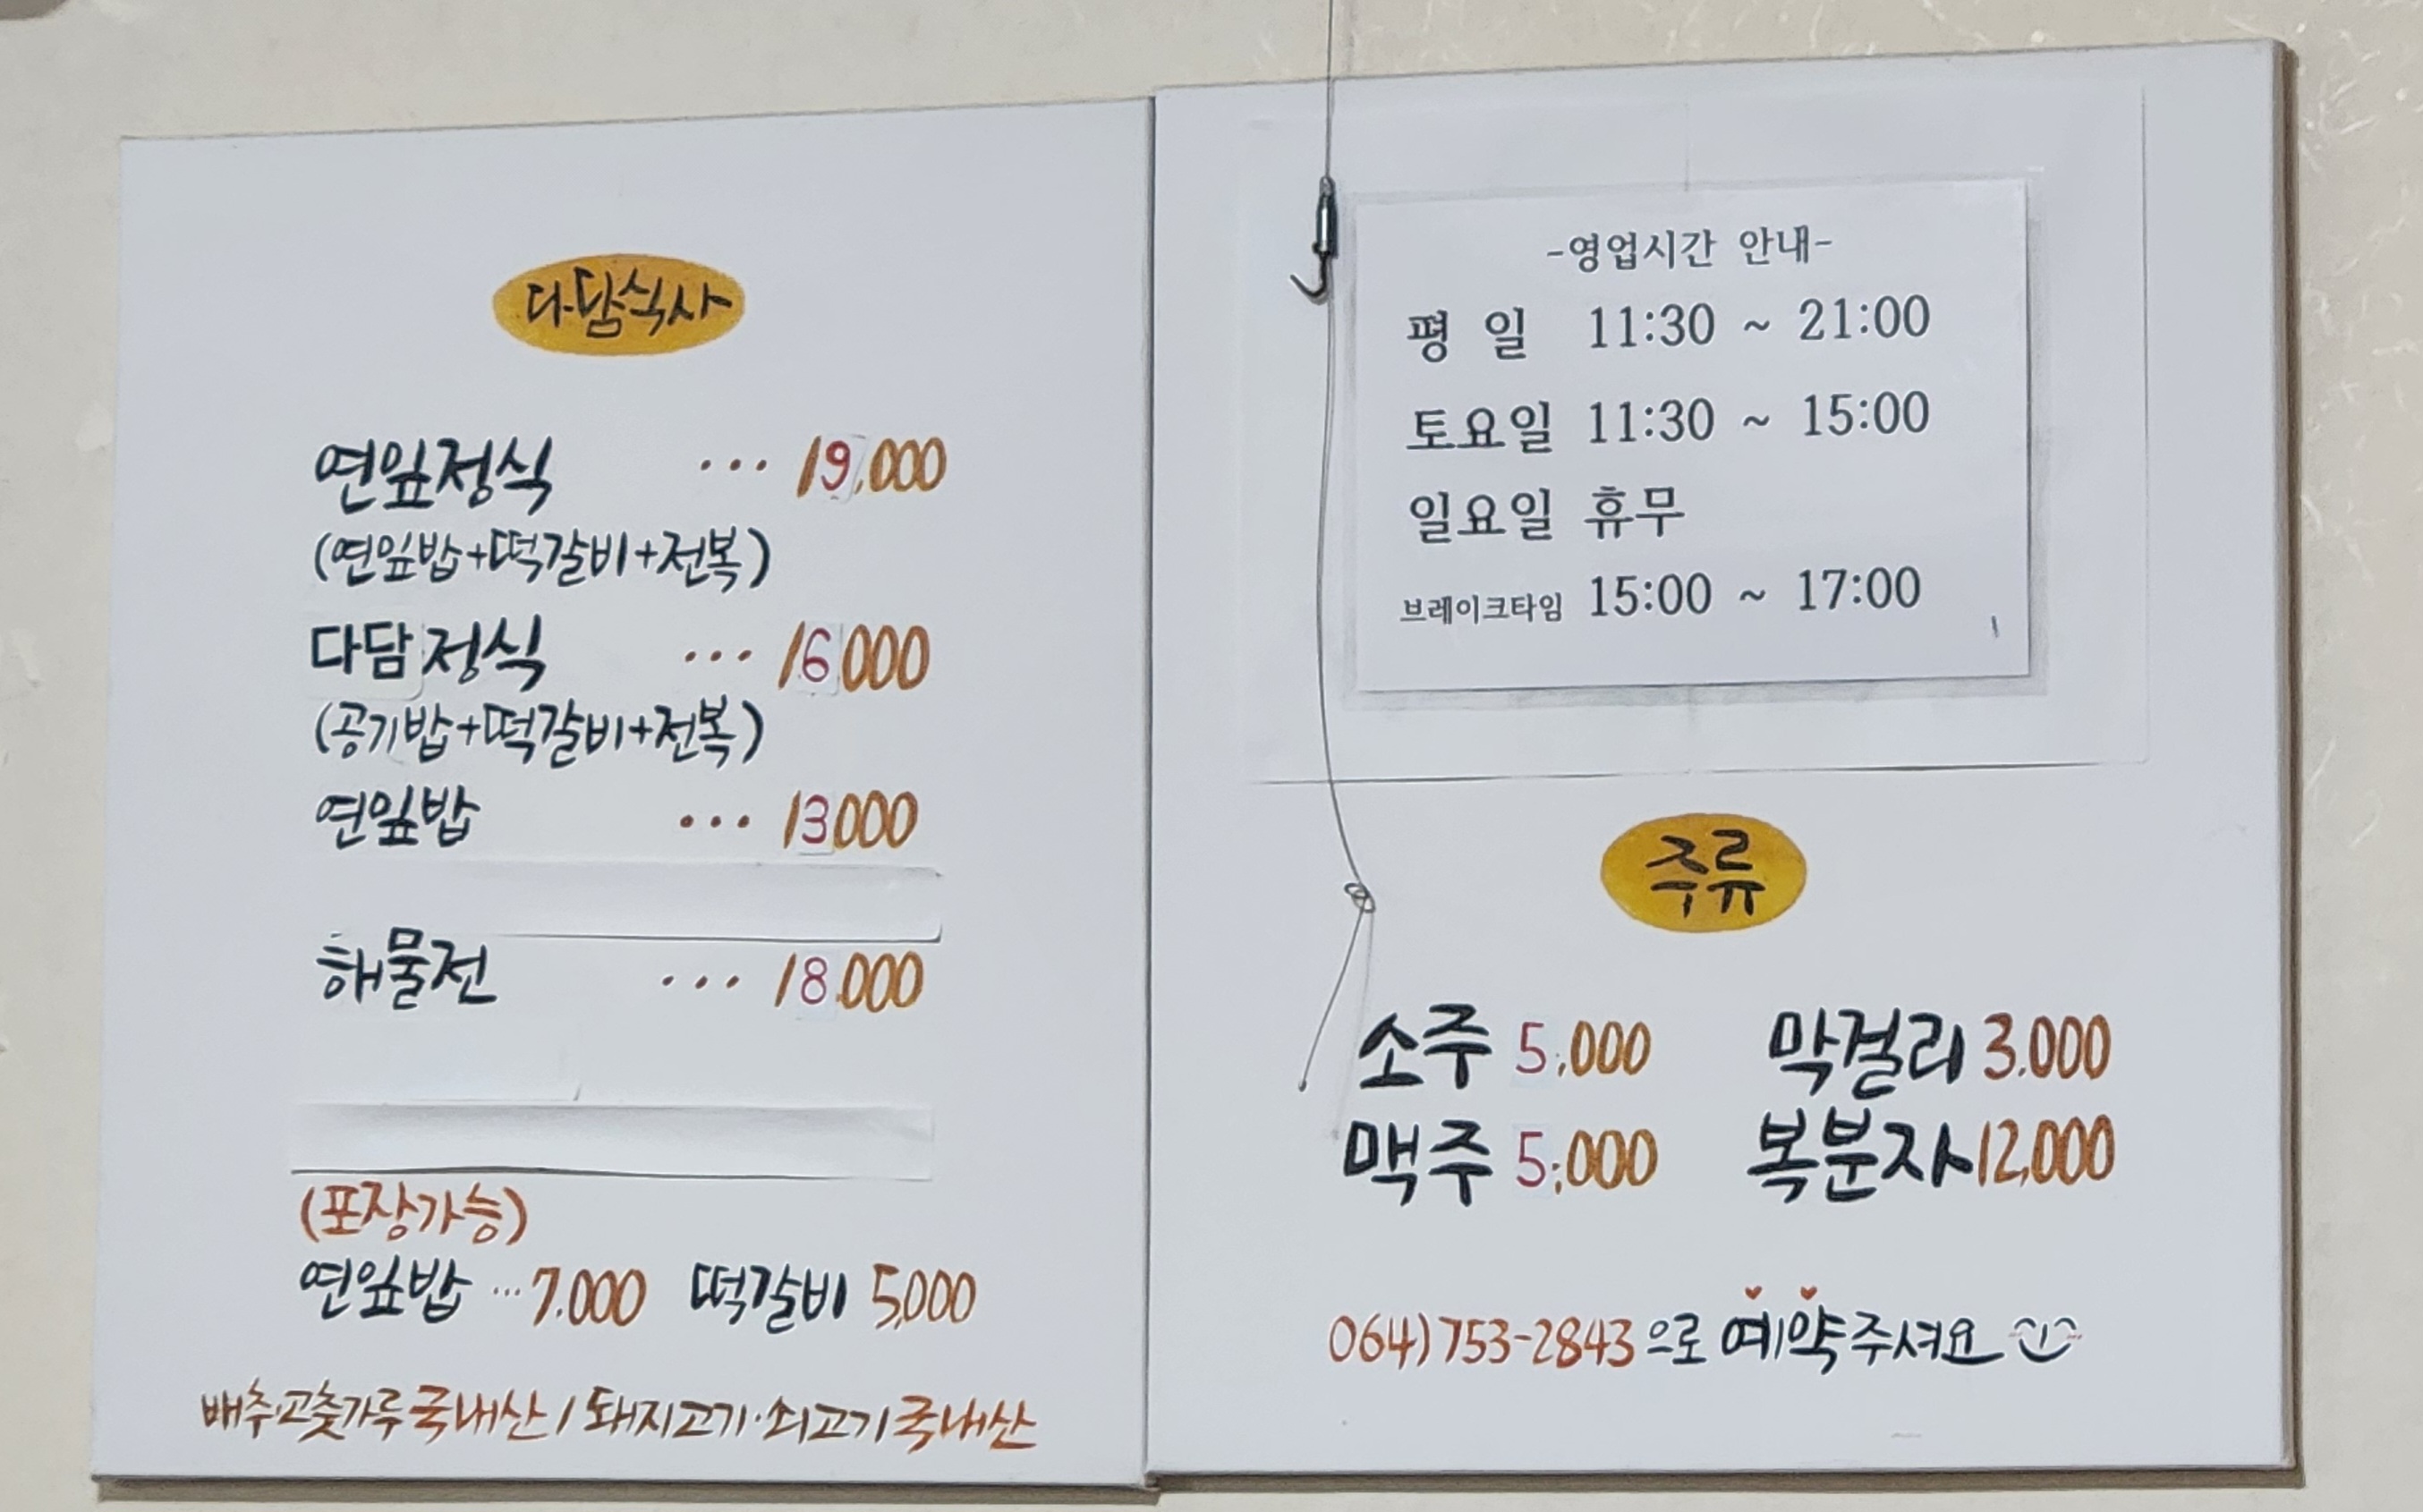 다담식사
연잎정식 ... 19,000
(연잎밥+떡갈비+전복)
다담정식 ... 16000
(공기밥+떡갈비+전복)
연잎밥 ... 13000
해물전 ... 18.000
(포장가능)
연잎밥 ... 7.000 떡갈비 5,000
배추·고춧가루 국내산 / 돼지고기·쇠고기 국내산
-영업시간 안내-
평 일 11:30 ~ 21:00
토요일 11:30 ~ 15:00
일요일 휴무
브레이크타임 15:00 ~ 17:00
주류
소주 5,000 막걸리 3.000
맥주 5,000 복분자 12,000
064)753-2843으로 예약주셔요